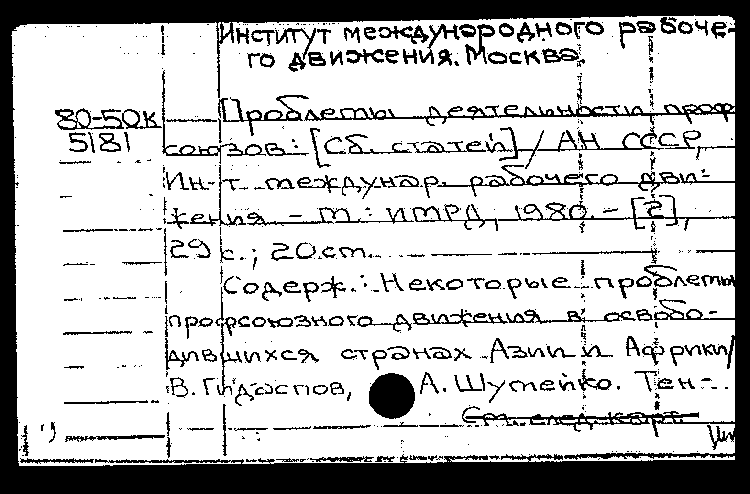 Институт международного рабоче-
го движения. Москва.
80-50к
5181
Проблемы деятельности проф
союзов: [Сб. статей] / АН СССР,
Ин-т междунар. рабочего дви-
жения - М.: ИМРД, 1980. - [2],
29 с.; 20 см.
Содерж.: Некоторые проблемы
профсоюзного движения в освобо-
дившихся странах Азии и Африки/
В. Гидаспов, А. Шумейко. Тен-
См. след. карт.